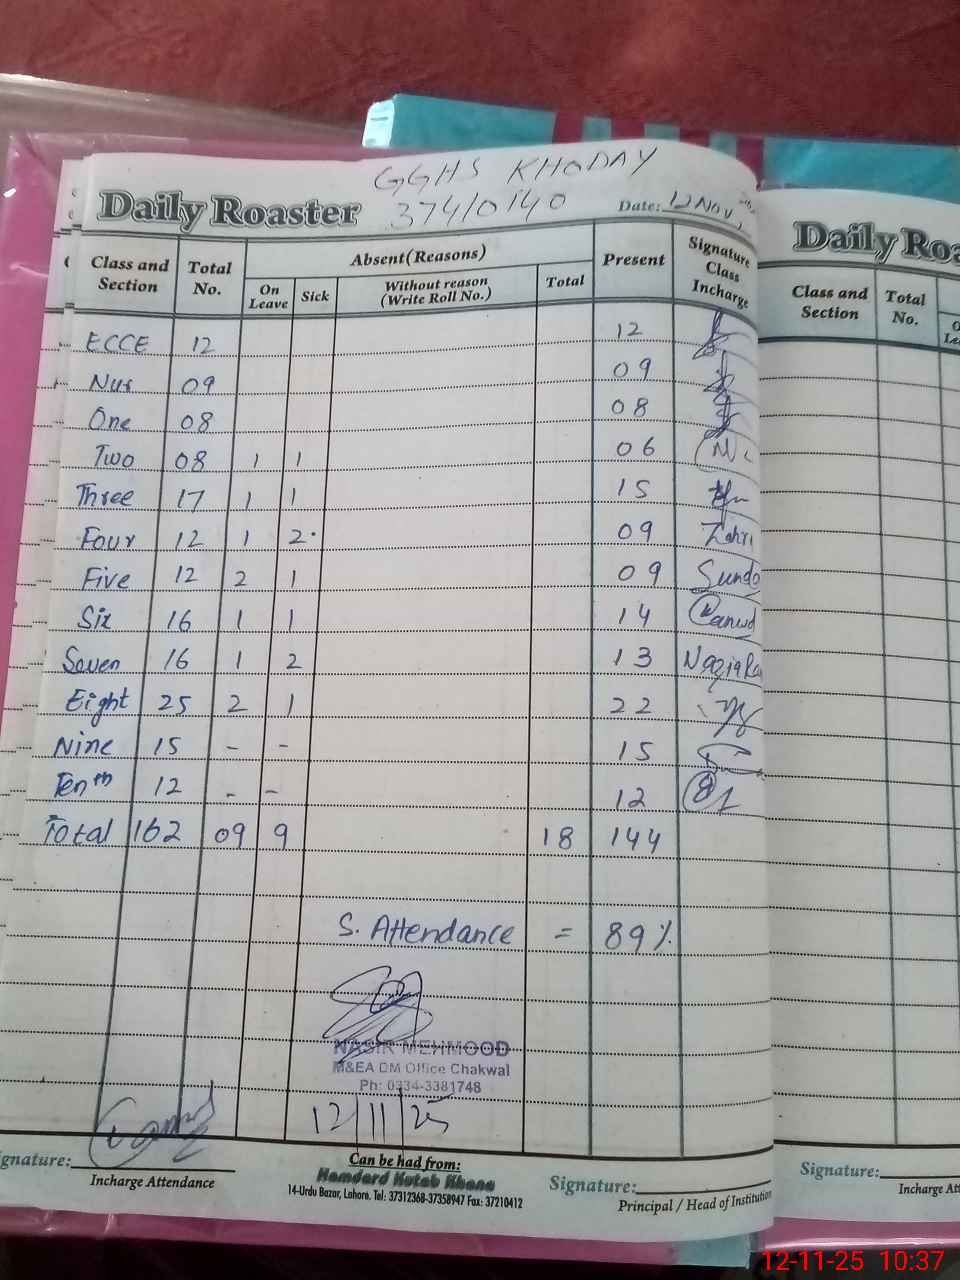 GGHS KHODAY
Daily Roaster 37410140 Date: 12 Nov,
Class and Section Total No. Absent (Reasons) Present Signature Class Incharge
On Leave Sick Without reason (Write Roll No.) Total
ECCE 12 12
Nur 09 09
One 08 08
Two 08 1 1 06
Three 17 1 1 15
Four 12 1 2 09
Five 12 2 1 09
Six 16 1 1 14
Seven 16 1 2 13
Eight 25 2 1 22
Nine 15 - - 15
Tenth 12 - - 12
Total 162 09 9 18 144
S. Attendance = 89%
NASIR MEHMOOD
M&EA DM Office Chakwal
Ph: 0334-3381748
12/11/25
Signature:
Incharge Attendance
Can be had from:
Hamdard Kutab Khana
14-Urdu Bazar, Lahore. Tel: 37312368-37358947 Fax: 37210412
Signature:
Principal / Head of Institution
Daily Roa
Class and Section Total No.
Signature:
Incharge Att
12-11-25 10:37